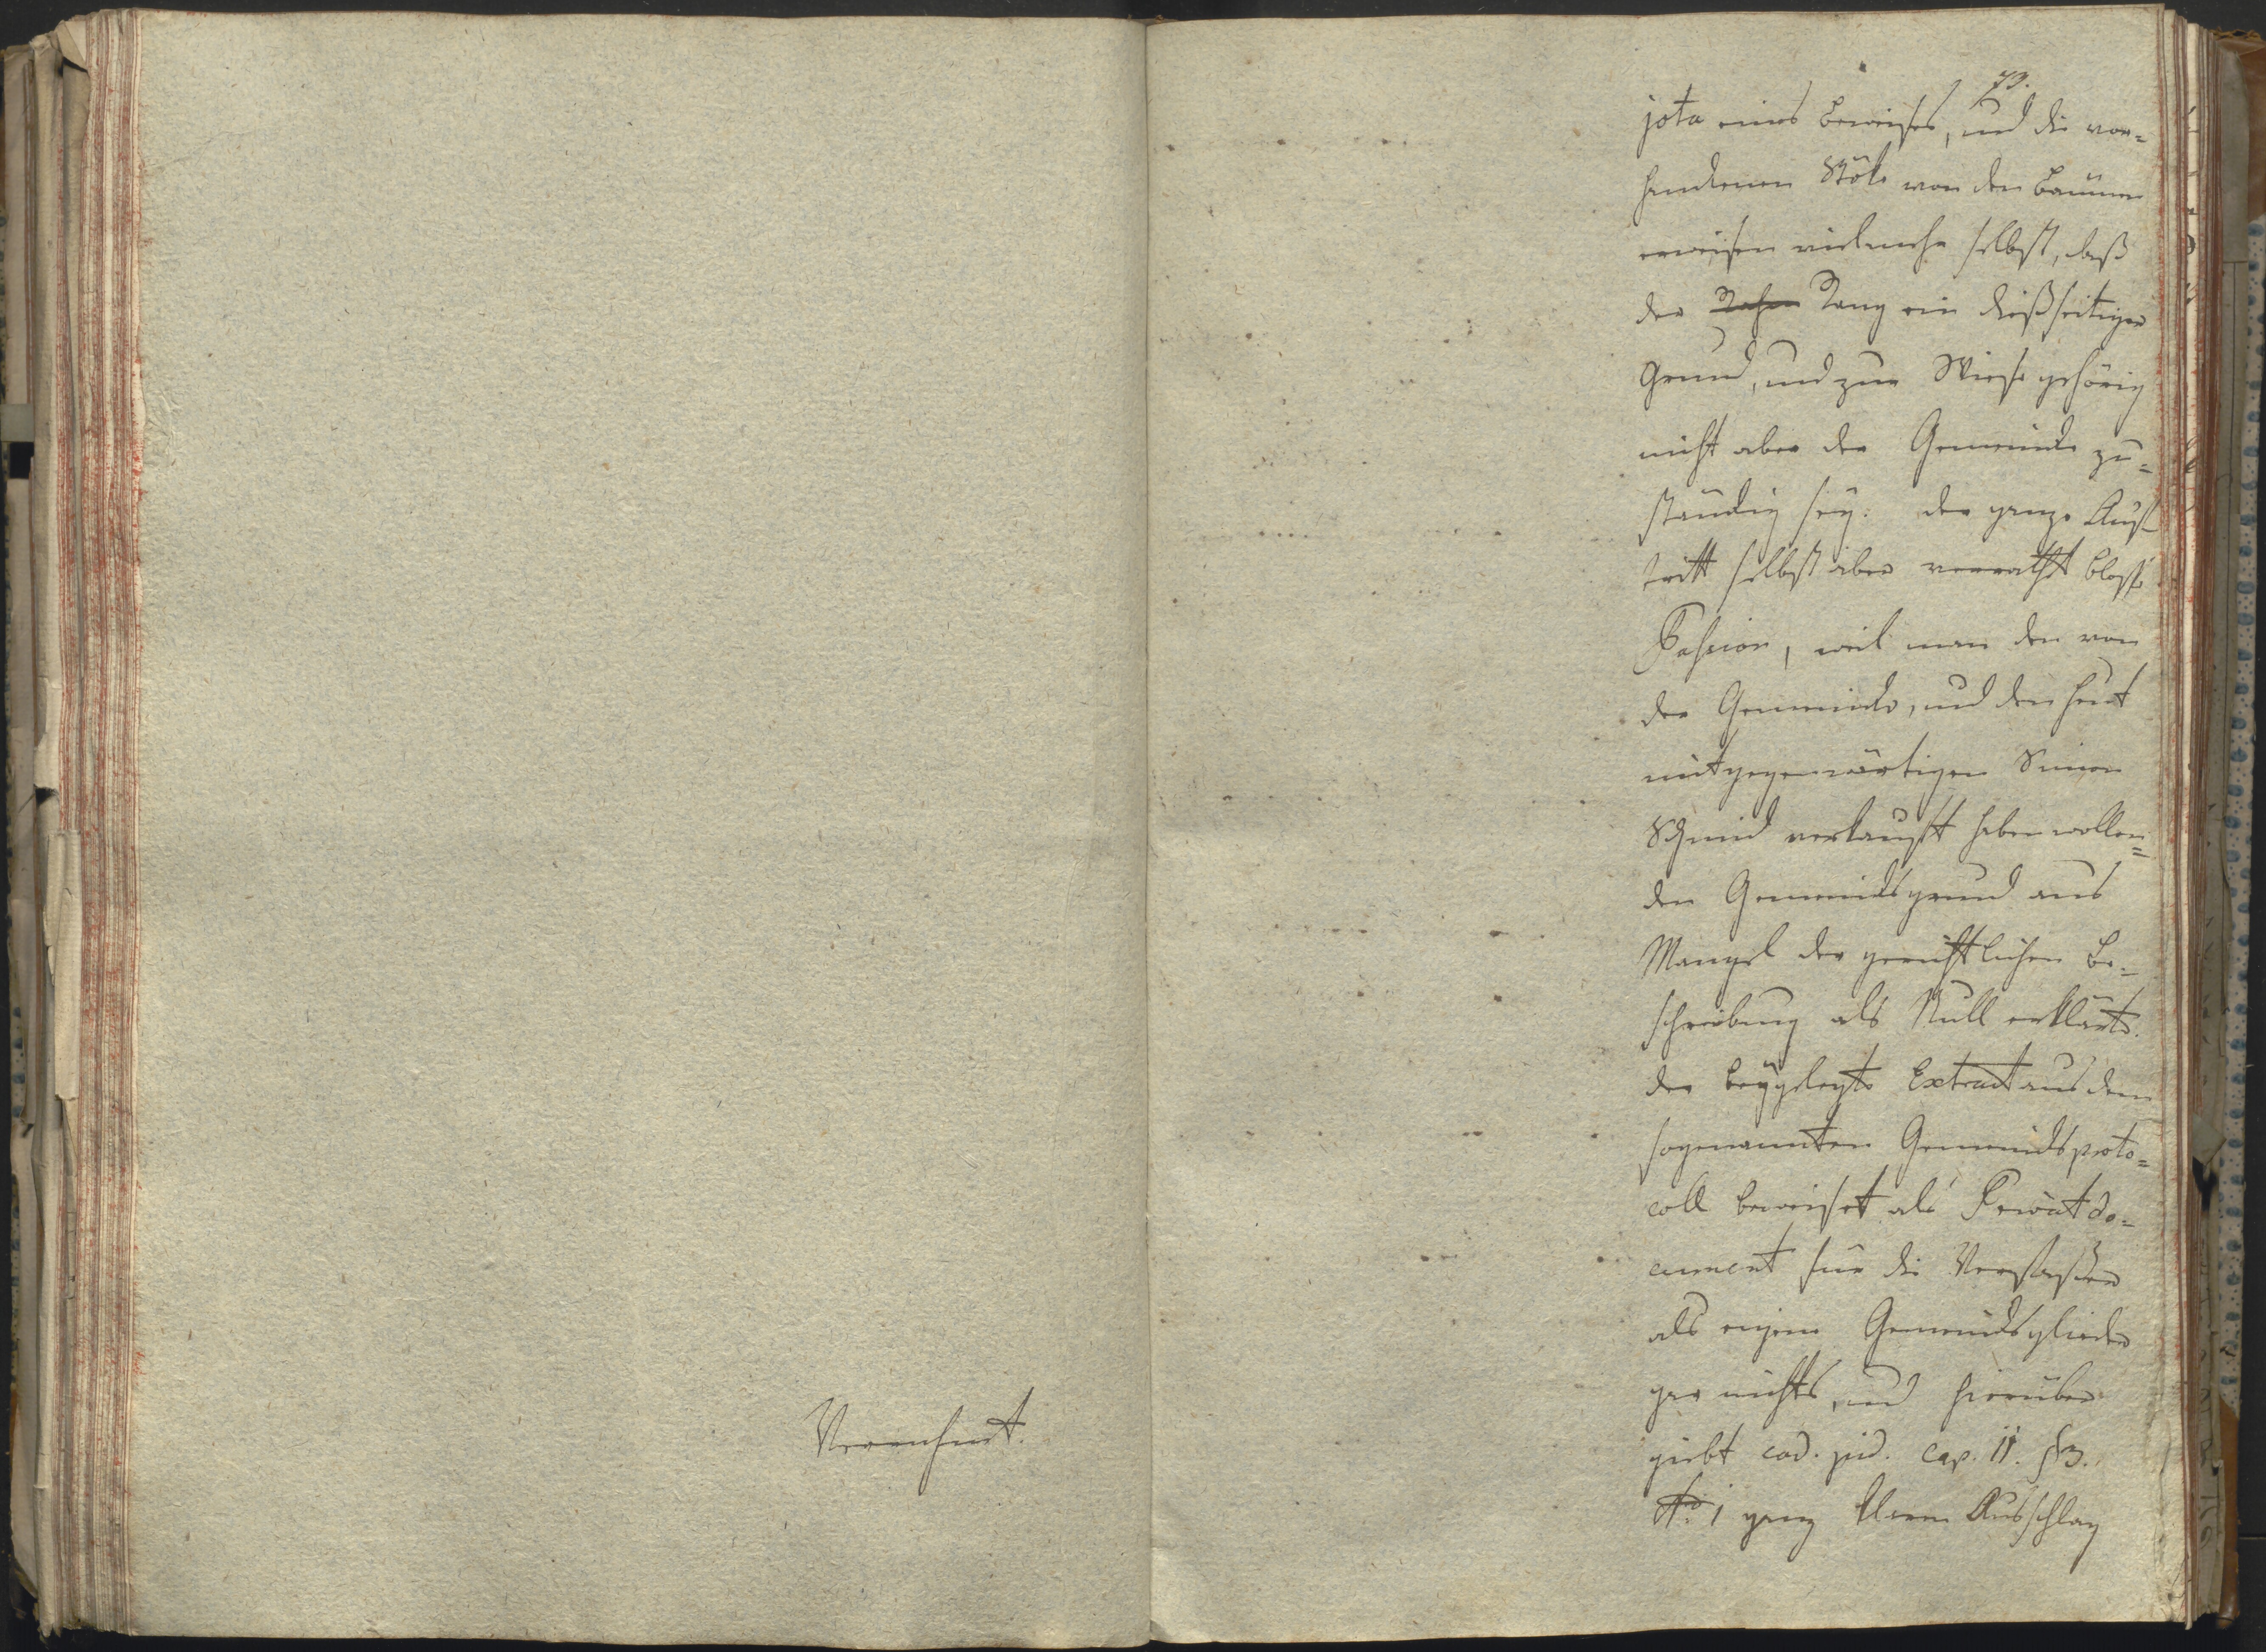 73.
jota eines Beweises, und die vor=
handenen Stöke von den Bäumen
erweisen vielmehr selbst, daß
der Rahn Rang ein dießseitiger
Grund, und zur Wiese gehörig
nicht aber der Gemeinde zu=
ständig sey. der ganze Auf
tritt selbst aber verrathet blosse
Passion, weil man den von
der Gemeinde, und den heut
mitgegenwärtigen Simon
Schmid verkauft haben wollen=
den Gemeindsgrund aus
Mangel der gerichtlichen Be=
schreibung als Null erklärte.
der beygelegte Extract aus dem
sogenannten Gemeindsproto=
coll beweiset als Privatdo=
cument für die Verfasser
als eigene Gemeindsglieder
gar nichts, und hierüber
giebt cod. jud. cap. 11. §3.
No. 1 ganz klaren Ausschlag